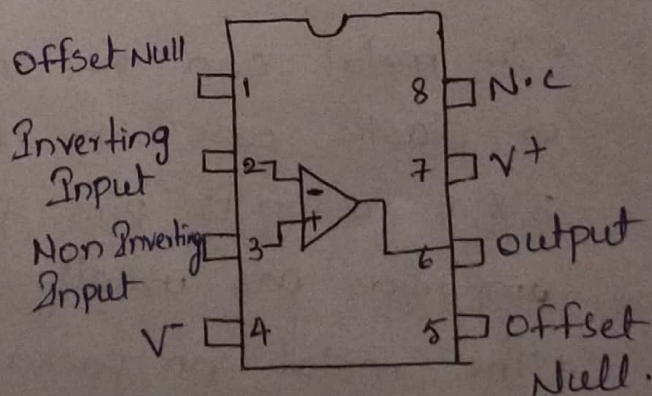 Offset Null
1
Inverting
Input
2
-
+
Non Inverting
Input
3
V-
4
8 N.C
7 V+
6 Output
5 Offset
Null.